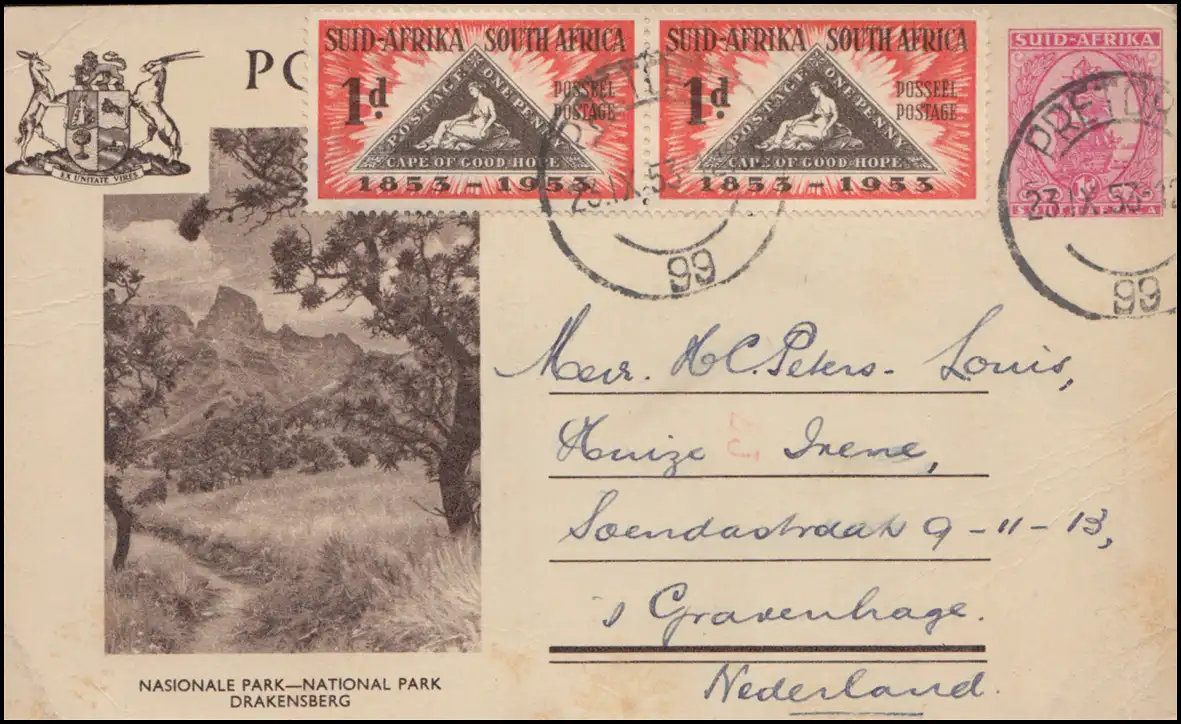 EX UNITATE VIRES
PO
SUID-AFRIKA SOUTH AFRICA
1d
POSSEEL
POSTAGE
POSTAGE ONE PENNY
CAPE OF GOOD HOPE
1853 - 1953
SUID-AFRIKA SOUTH AFRICA
1d
POSSEEL
POSTAGE
POSTAGE ONE PENNY
CAPE OF GOOD HOPE
1853 - 1953
SUID-AFRIKA
PRETO
23.IX.53
99
PRETO
23.IX.53-12
99
Mevr. H C. Peters - Louis,
Huize Irene,
Soendastraat 9-11-13,
's Gravenhage.
Nederland.
NASIONALE PARK—NATIONAL PARK
DRAKENSBERG